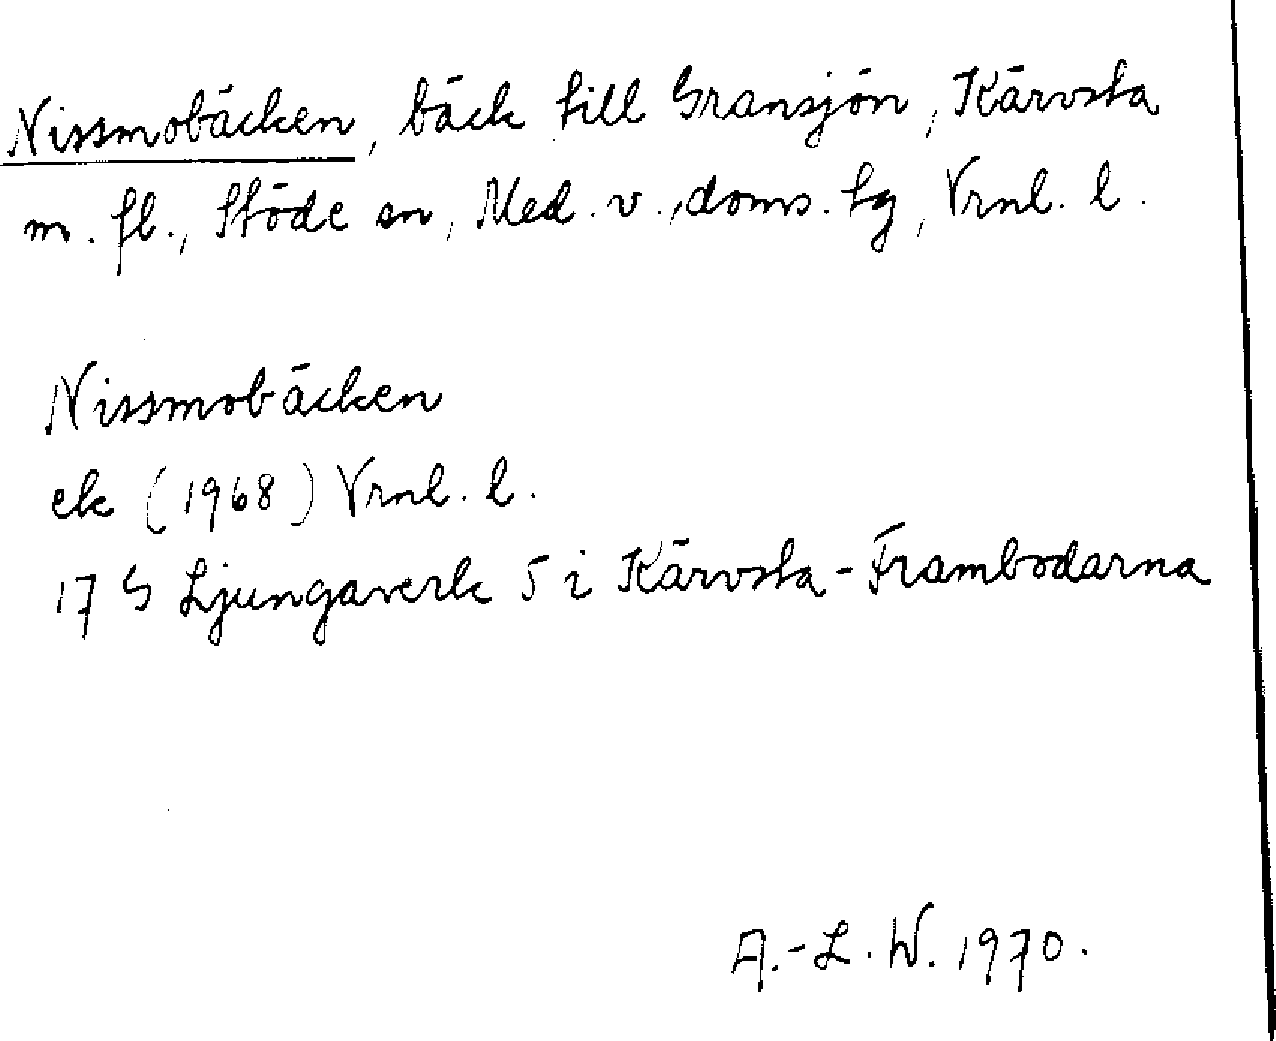 Nissmobäcken, bäck till Gransjön, Kärvsta
m. fl., Stöde sn, Med. v., doms. tg, Vrnl. l.
Nissmobäcken
ek (1968) Vrnl. l.
17 G Ljungaverk 5 i Kärvsta-Frambodarna
A.-L. W. 1970.